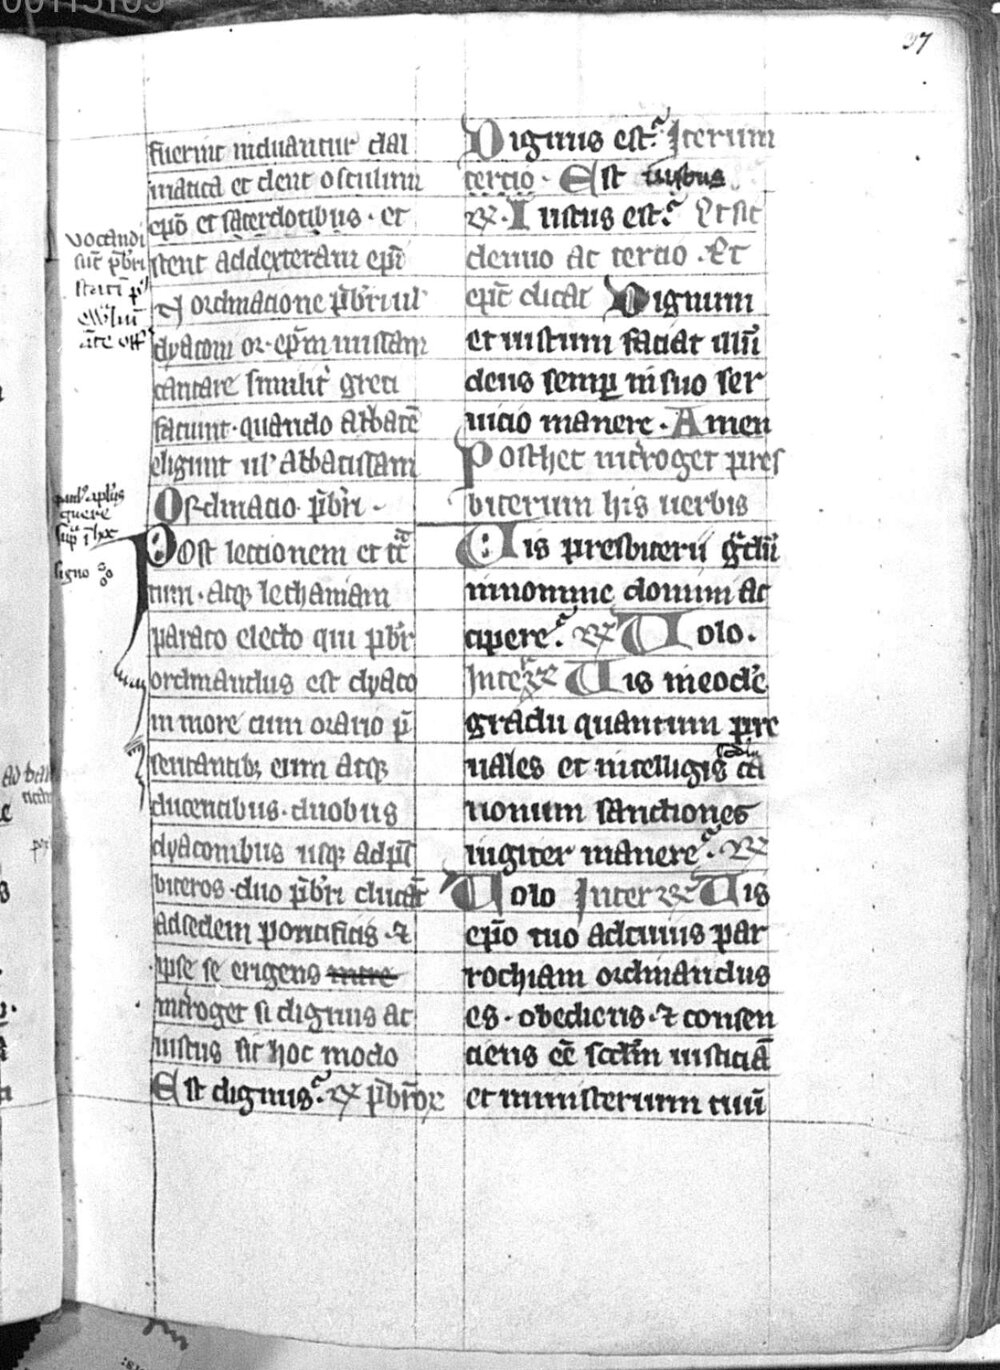 37
fuerint induantur dal
matica et dent osculum
ep̄o et sacerdotibus · et
stent addexteram ep̄i
ordinatione p̄br̄i ul'
dyaconi
cantare simulit᷑ greci
faciunt · quando abbatē
eligunt ul' abbatissam
Ordinatio p̄br̄i ·
Post lectionem et tc̄
tum · atq; lethaniam
parato electo qui p̄br̄
ordinandus est dyaco
ni more cum orario p̄
sentantib; eum atq;
ducentibus · duobus
dyaconibus usq; ad p̄s
biteros · duo p̄br̄i ducāt
ad sedem pontificis · ⁊
ipse se erigens
int̄roget si dignus ac
iustus sit hoc modo
Est dignus · ℟ p̄br̄oꝝ
Dignus est · Iterum
tercio · Est iustus
℟ · Iustus est · Et sic
denuo ac tercio · Et
ep̄c dicat Dignum
et iustum faciat illū
deus semꝑ in suo ser
uicio manere · Amen
Posthec int̄roget pres
biterum his uerbis
Uis presbiterii ḡdū
innomine domini ac
cipere · ℟ Uolo ·
Inter Uis ineodē
gradu quantum pre
uales et intelligis ca
nonum sanctiones
iugiter manere · ℟
Uolo Inter Uis
ep̄o tuo ad cuius par
rochiam ordinandus
es · obediens · ⁊ consen
ciens eē scd̄m iusticiā
et ministerium tuū
vocandi
sūt p̄br̄i
signo